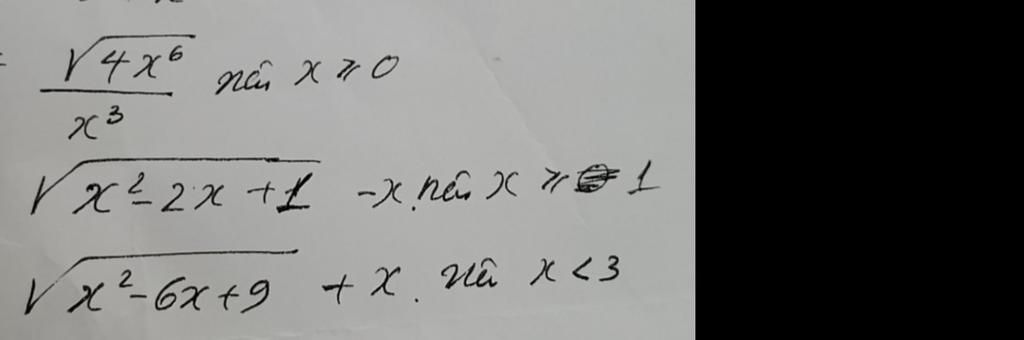 √(4x⁶) / x³ nếu x ⩾ 0
√(x² - 2x + 1) - x. nếu x ⩾ 1
√(x² - 6x + 9) + x. nếu x < 3